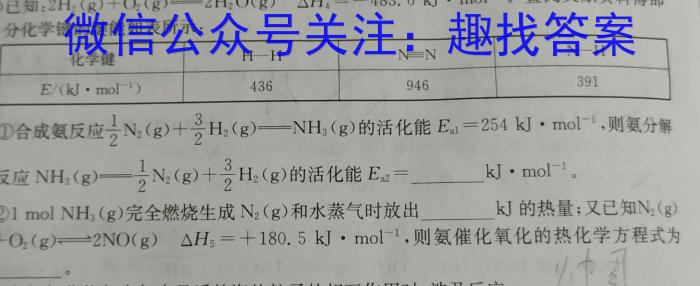 已知:2H₂(g)+O₂(g)══2H₂O(g) ΔH₄=-483.6 kJ·mol⁻¹
分化学键
微信公众号关注：趣找答案
化学键 H—H N≡N
E/(kJ·mol⁻¹) 436 946 391
①合成氨反应1/2 N₂(g)+3/2 H₂(g)══NH₃(g)的活化能Eₐ₁=254 kJ·mol⁻¹,则氨分解
反应NH₃(g)══1/2 N₂(g)+3/2 H₂(g)的活化能Eₐ₂=______kJ·mol⁻¹。
②1 mol NH₃(g)完全燃烧生成N₂(g)和水蒸气时放出______kJ的热量;又已知N₂(g)
+O₂(g)⇌2NO(g) ΔH₅=+180.5 kJ·mol⁻¹,则氨催化氧化的热化学方程式为
______。